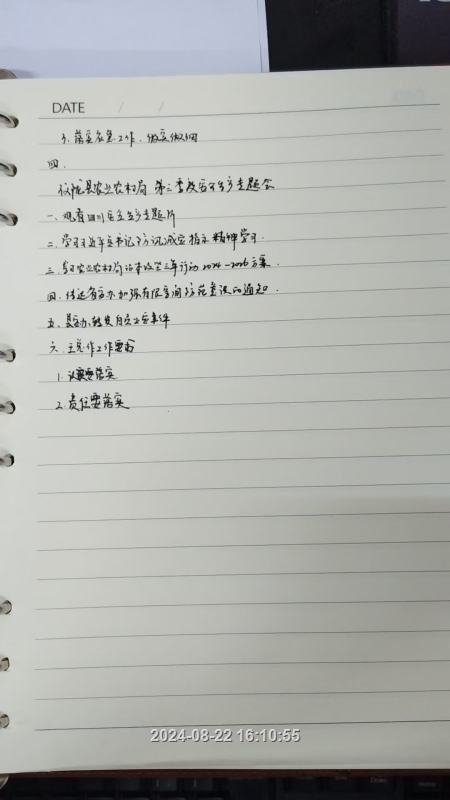 DATE / /
5. 落实应急工作,做实做细
四.
仪陇县农业农村局 第三季度安全生产专题会
一. 观看四川安全生产专题片
二. 学习习近平总书记防汛减灾指示精神学习.
三. 学习农业农村局治本攻坚三年行动2024-2026方案.
四. 传达省安办加强有限空间防范意识的通知.
五. 县安办转发自贡火灾事件
六. 工作要求
1. 认识要落实
2. 责任要落实
2024-08-22 16:10:55